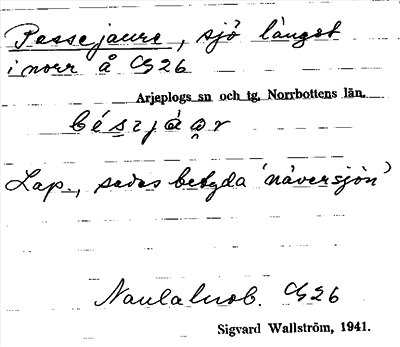 Pessejaure, sjö längst
i norr å G26
Arjeplogs sn och tg, Norrbottens län.
bésjàạr
Lap., sades betyda 'näversjön'
G26
Sigvard Wallström, 1941.